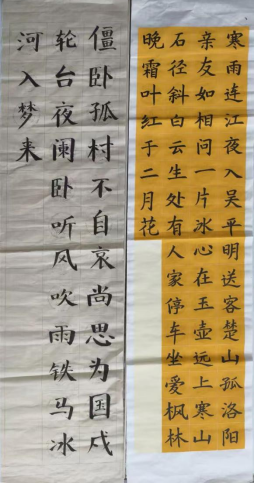 寒雨连江夜入吴平明送客楚山孤洛阳
亲友如相问一片冰心在玉壶远上寒山
石径斜白云生处有人家停车坐爱枫林
晚霜叶红于二月花
僵卧孤村不自哀尚思为国戍
轮台夜阑卧听风吹雨铁马冰
河入梦来